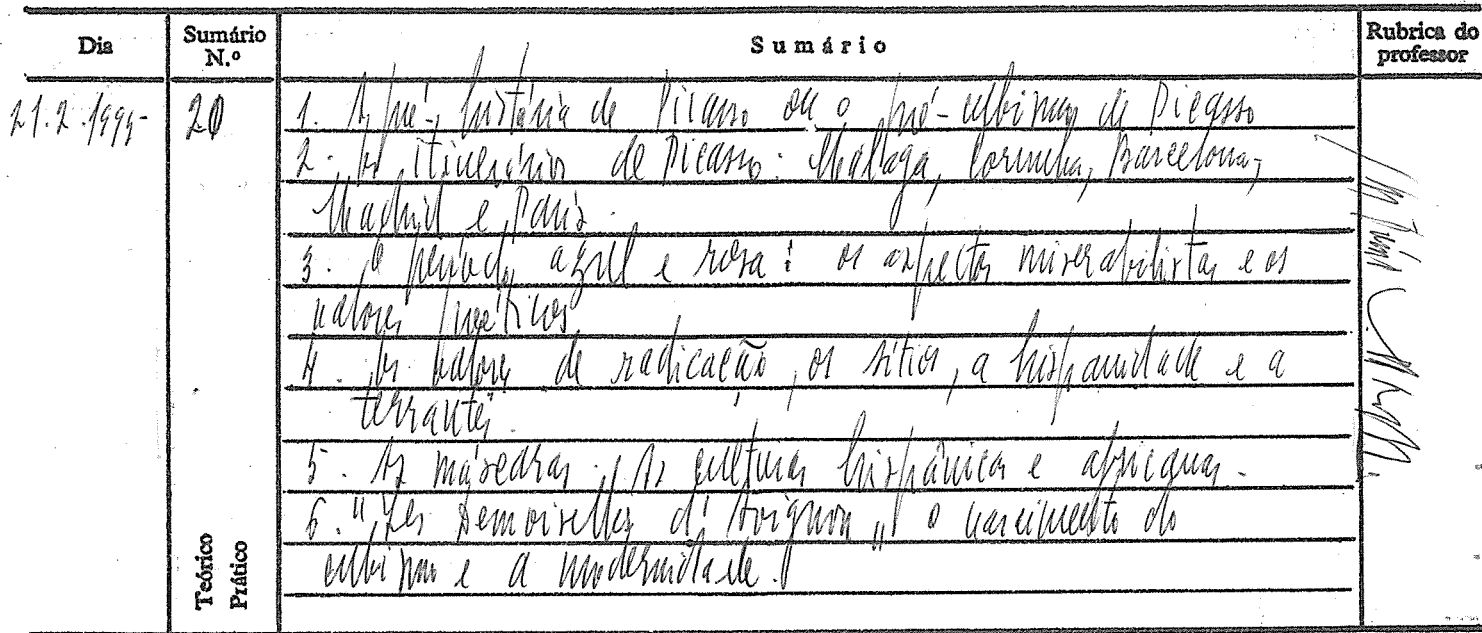 Dia
Sumário N.º
Sumário
Rubrica do professor
21.2.1995
20
1. A pré-história de Picasso ou o pré-cubismo de Picasso
2. Os itinerários de Picasso: Málaga, Corunha, Barcelona,
Madrid e Paris.
3. O período azul e rosa: os aspectos miserabilistas e os
valores poéticos
4. Os valores de radicação, os sítios, a hispanidade e a
5. As máscaras. As culturas hispânicas e africanas.
6. "Les Demoiselles d'Avignon" o nascimento do
cubismo e a modernidade.
Teórico
Prático